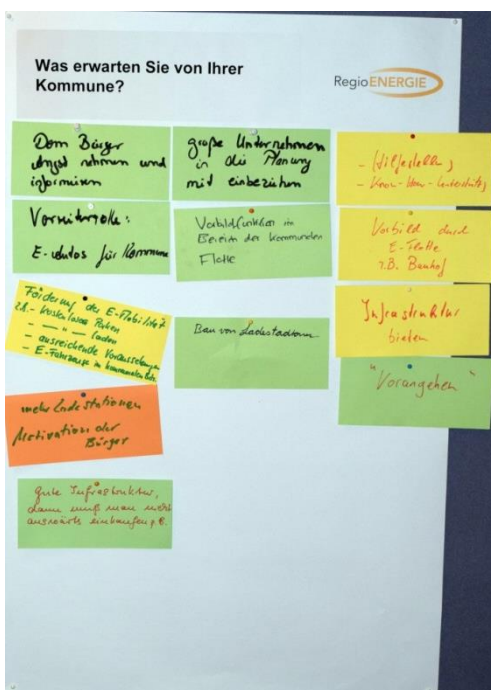 Was erwarten Sie von Ihrer
Kommune?
RegioENERGIE
Dem Bürger
Angst nehmen und
informieren
Vorreiterrolle:
E-Autos für Kommune
Förderung der E-Mobilität
z.B. - kostenloses Parken
- " - laden
- ausreichende Voraussetzungen
- E-Fahrzeuge im kommunalen
mehr Ladestationen
Motivation der
Bürger
gute Infrastruktur,
dann muß man nicht
auswärts einkaufen z.B.
große Unternehmen
in die Planung
mit einbeziehen
Vorbildfunktion im
Bereich der kommunalen
Flotte
Bau von Ladestationen
- Hilfestellung
- Know-How-Unterstützg
Vorbild durch
E-Flotte
z.B. Bauhof
Infrastruktur
bieten
"Vorangehen"